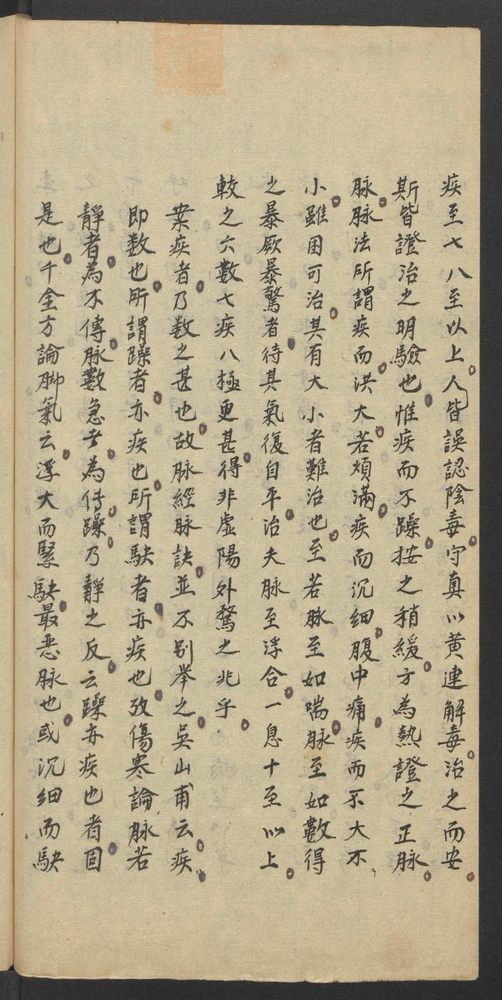 疾至七八至以上人皆誤認陰毒守真以黄連解毒治之而安
斯皆證治之明驗也惟疾而不躁按之稍緩方為熱證之正脉
脉脉法所謂疾而洪大若煩滿疾而沉細腹中痛疾而不大不
小雖困可治其有大小者難治也至若脉至如喘脉至如數得
之暴厥暴驚者待其氣復自平治夫脉至浮合一息十至以上
較之六數七疾八極更甚得非虛陽外騖之兆乎
案疾者乃数之甚也故脉經脉訣並不别举之吳山甫云疾
即数也所謂躁者亦疾也所謂駃者亦疾也攷傷寒論脉若
靜者為不傳脉數急者為傳躁乃靜之反云躁亦疾也者固
是也千金方論脚氣云浮大而緊駃最惡脉也或沉細而駃